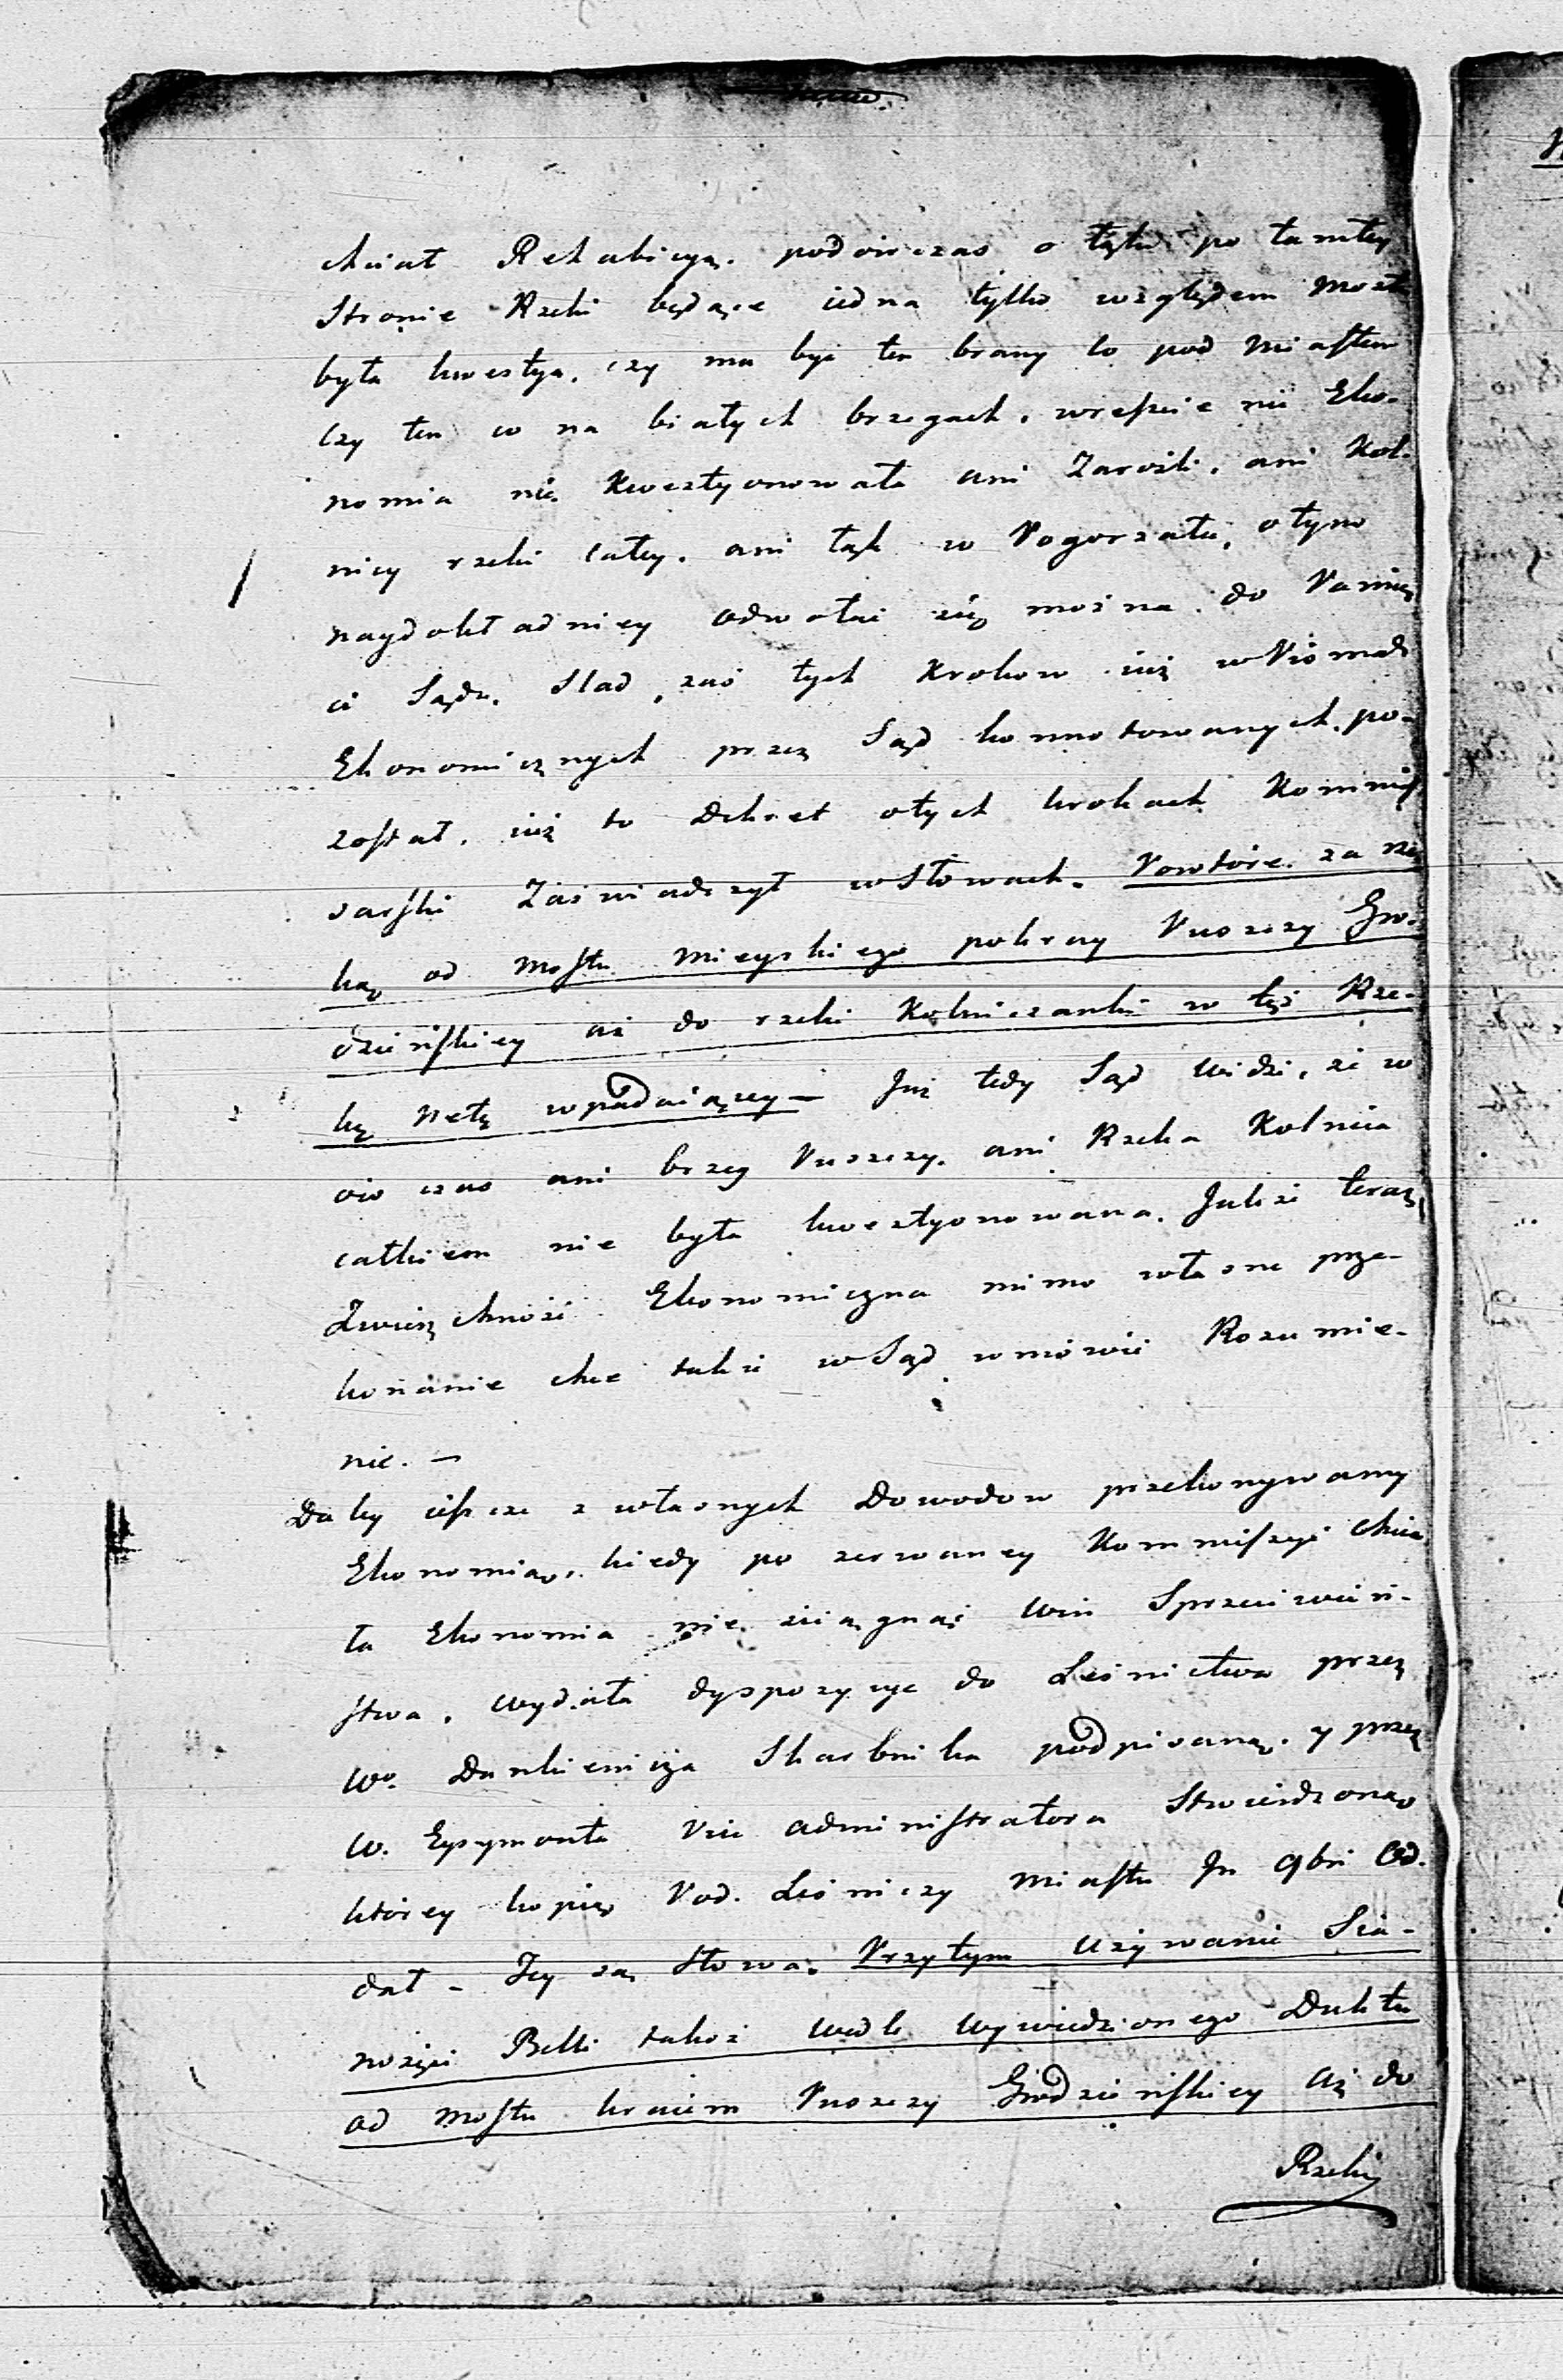 chciał Rekabicyą. podówczas o łąki po tamtey
Stronie Rzeki będące iedna tylko względem Most
była kwestya, czy ma być ten brany co pod Miastem
czy ten co na białych brzegach, wreszcie nie Eko-
nomia nie Kwestyonowała ani Zarośli, ani Kol-
nicy rzeki całey. ani łąk w Pogorzału, o tym
naydokładniey odwołać się można do Pamię
ci Sądu. Slad zaś tych Krokow iuż w Pismach
Ekonomicznych przez Sąd konnotowanych po-
został, iuż to Dekret o tych krokach Kommis
sarski Zaświadczył w Słowach. Powtóre za rze
ką od Mostu Mieyskiego pokray Puszczy Gro-
dzieńskiey aż do rzeki Kolniczanki w tęż Rze-
kę Netę wpadaiącey — Już tedy Sąd widzi, że w
ów czas ani brzeg Puszczy, ani Rzeka Kolnica
całkiem nie była kwestyonowana. Jakże teraz
Zwierzchność Ekonomiczna mimo własne prze-
konanie chce takie w Sąd wmówić Rozumie-
nie. —
Daley ieszcze z własnych Dowodow przekonywamy
Ekonomią, kiedy po zerwaney Kommissyi chcia
ła Ekonomia nie ściągnąć win Sprzeciwień-
stwa, wydała dyspozycye do Leśnictwa przez
Wo. Dankiewicza Skarbnika podpisaną. y przez
W. Eysymonta Vice administratora Stwierdzoną
którey kopią Pod. Leśniczy Miastu Jn 9bri Od-
dał - Jey są Słowa. Przytym Używanie Sia-
nożęci Belki takoż wedle wywiedzionego Duktu
od Mostu kraiem Puszczy Grodzieńskiey aż do
Rzeki